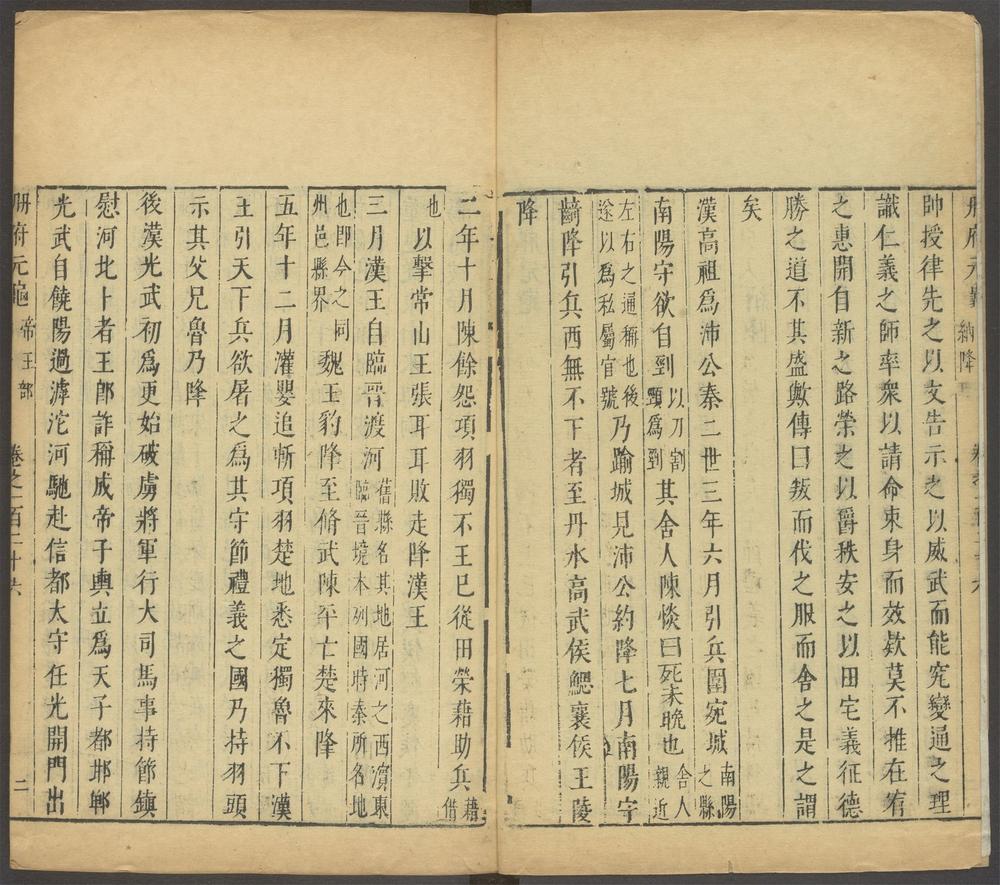 冊府元龜 納降
帥授律先之以文告示之以威武而能究變通之理
識仁義之師率衆以請命束身而效款莫不推在宥
之惠開自新之路榮之以爵秩安之以田宅義征德
勝之道不其盛歟傳曰叛而伐之服而舍之是之謂
矣
漢高祖爲沛公秦二世三年六月引兵圍宛城南陽之縣
南陽守欲自剄以刀割頸爲剄其舍人陳恢曰死未晩也舍人親近
左右之通稱也後遂以爲私屬官號乃踰城見沛公約降七月南陽守
齮降引兵西無不下者至丹水高武侯鰓襄侯王陵
降
二年十月陳餘怨項羽獨不王已從田榮藉助兵藉借
也以擊常山王張耳耳敗走降漢王
三月漢王自臨晉渡河舊縣名其地居河之西濱東臨晉境本列國時秦所名地
也卽今之同州邑縣界魏王豹降至脩武陳平亡楚來降
五年十二月灌嬰追斬項羽楚地悉定獨魯不下漢
王引天下兵欲屠之爲其守節禮義之國乃持羽頭
示其父兄魯乃降
後漢光武初爲更始破虜將軍行大司馬事持節鎭
慰河北卜者王郎詐稱成帝子輿立爲天子都邯鄲
光武自饒陽過滹沱河馳赴信都太守任光開門出
冊府元龜 帝王部 卷之一百二十六 二